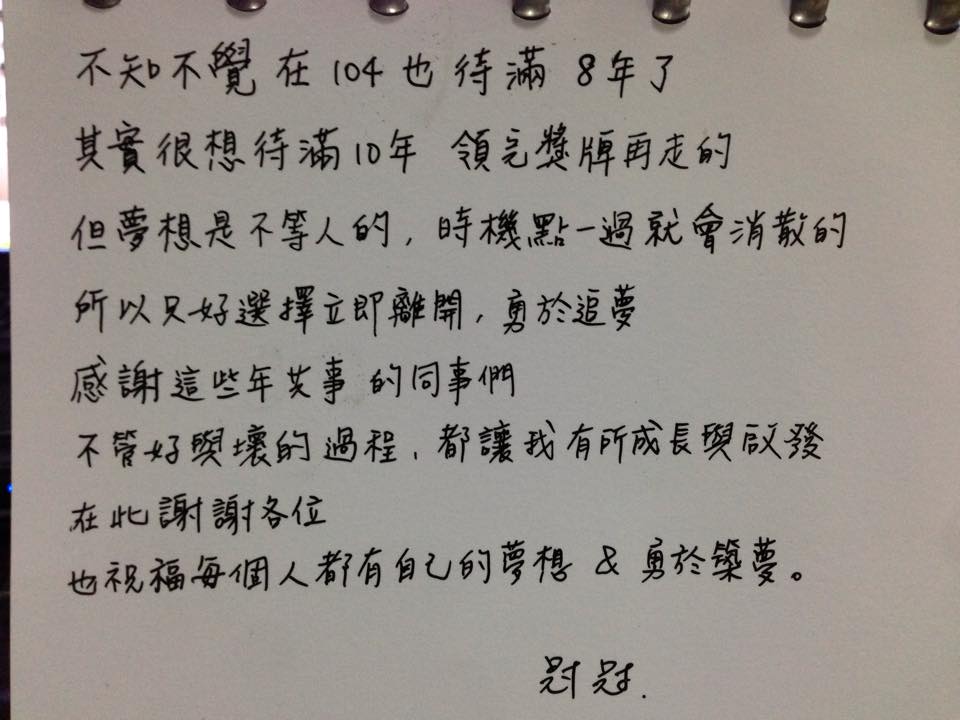 不知不覺在104也待滿 8年了
其實很想待滿10年 領完獎牌再走的
但夢想是不等人的，時機點一過就會消散的
所以只好選擇立即離開，勇於追夢
感謝這些年共事的同事們
不管好與壞的過程，都讓我有所成長與啟發
在此謝謝各位
也祝福每個人都有自己的夢想 & 勇於築夢。